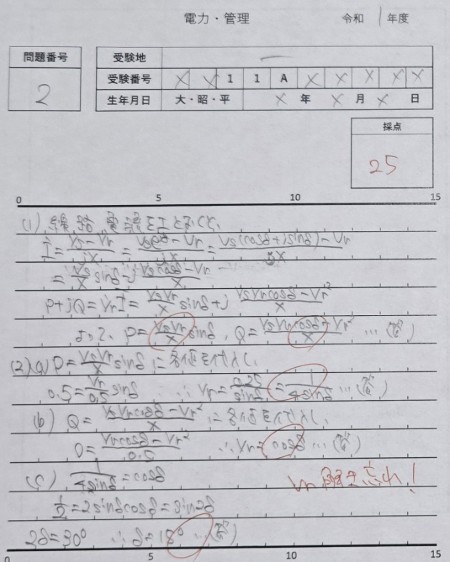 電力・管理 令和 1年度
問題番号
2
受験地 ー
受験番号 X X 1 1 A X X X X X
生年月日 大・昭・平 X 年 X 月 X 日
採点
25
0 5 10 15
(1) 線路電流をIとおくと、
İ = Vs-Vr/jX = Vse^jδ-Vr/jX = Vs(cosδ+jsinδ)-Vr/jX
= Vs/X sinδ-j Vscosδ-Vr/X
P+jQ=VrĪ = VsVr/X sinδ+j VsVrcosδ-Vr²/X
よって、P=VsVr/X sinδ, Q=VsVrcosδ-Vr²/X …(答)
(2)(a) P=VsVr/X sinδ に各値を代入し、
0.5=Vr/0.5 sinδ ∴Vr=0.25/sinδ=1/4sinδ …(答)
(b) Q=VsVrcosδ-Vr²/X に各値を代入し、
0=Vrcosδ-Vr²/0.5 ∴Vr=cosδ …(答)
(c) 1/4sinδ=cosδ Vr 解き忘れ!
1/2=2sinδcosδ=sin2δ
2δ=30° ∴δ=15° …(答)
0 5 10 15